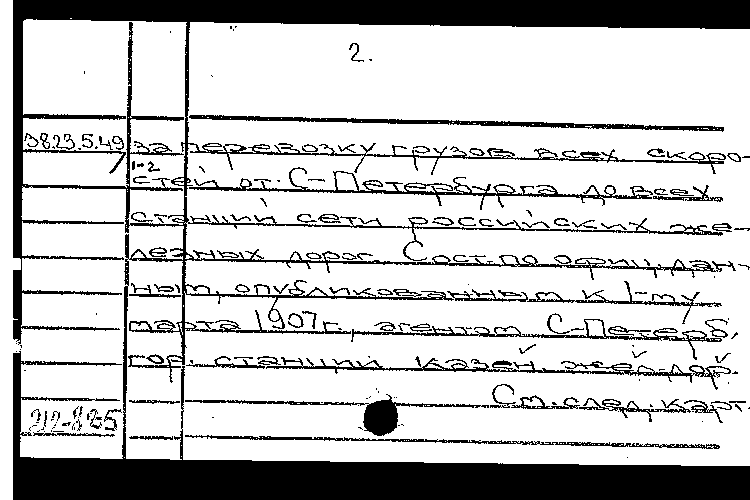 2.
3823.5.49 за перевозку грузов всех скоро-
1-2
стей от С-Петербурга до всех
станций сети российских же-
лезных дорог. Сост. по офиц. дан-
ным, опубликованным к 1-му
марта 1907г., агентом С-Петерб.
гор. станции казен. жел. дор.
См. след. карт.
212-825